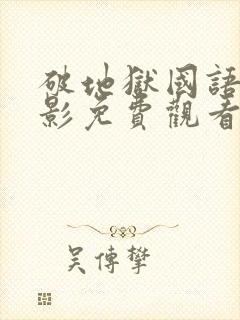 破地獄國語
影免費觀看
吳傳擎